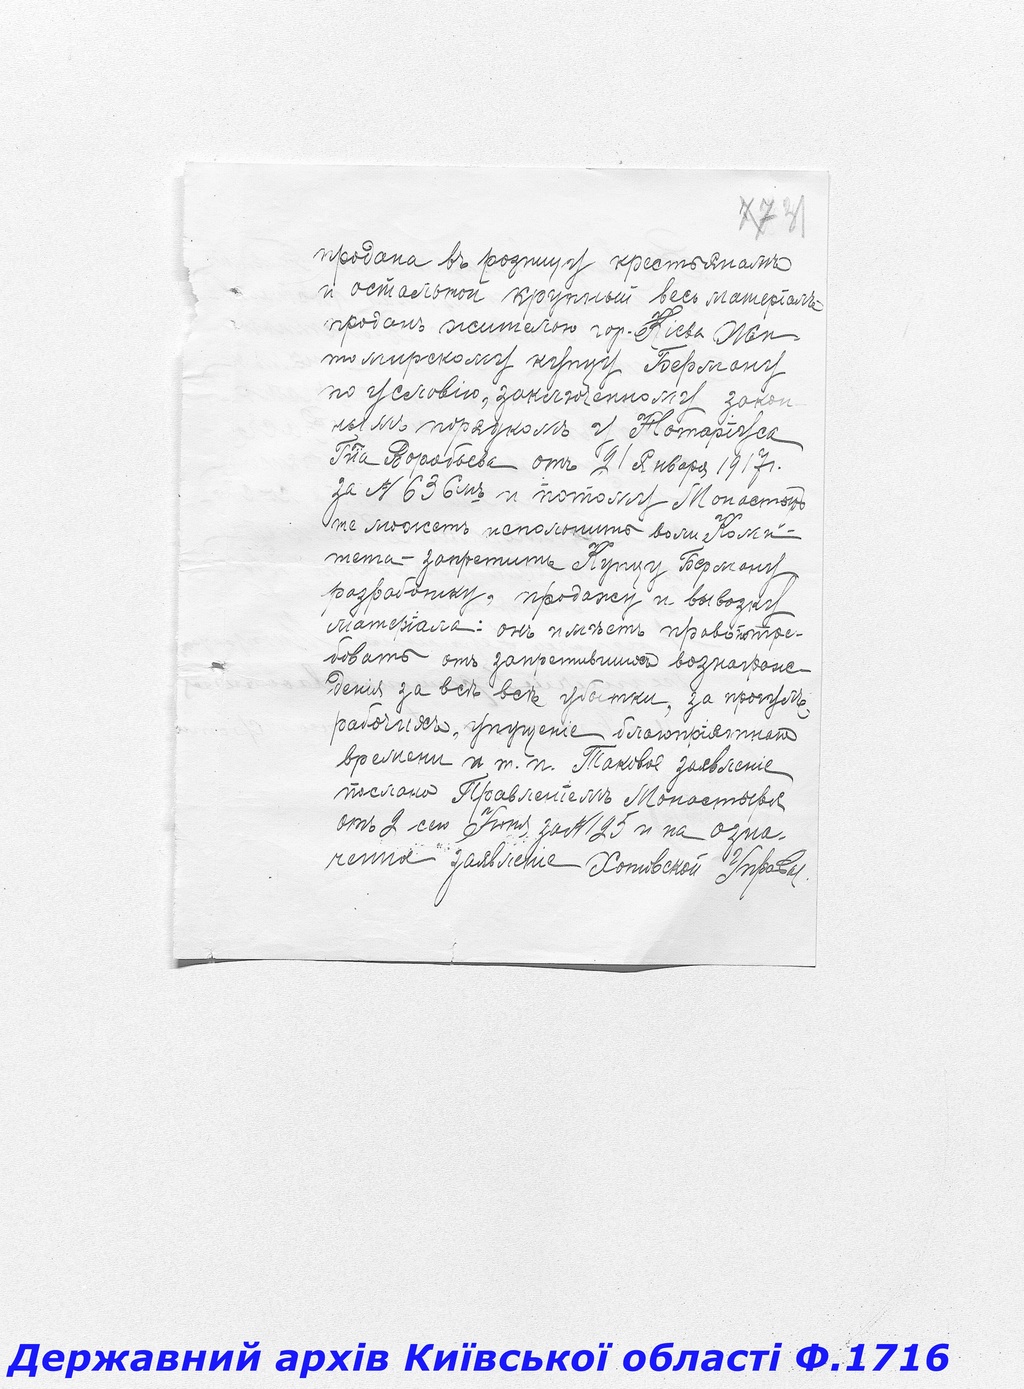 продана въ розницу крестьянамъ
и остальной крупный весь матеріалъ
проданъ жителю гор. Кіева Жи-
томирскому купцу Берману
по условію, заключенному закон-
нымъ порядкомъ у Нотаріуса
Г-на Воробьева отъ 21 Января 1917 г.
за № 636мъ и потому Монастырь
не можетъ исполнить воли Коми-
тета - запретить Купцу Берману
разработку, продажу и вывозку
матеріала: онъ имѣетъ право потре-
бовать отъ запретившихъ вознаграж-
денія за всѣ всѣ убытки, за прогулъ
рабочихъ, упущеніе благопріятнаго
времени и т. п. Таковое заявленіе
послано Правленіемъ Монастыря
отъ 2 сего Іюня за № 125 и на озна-
ченное заявленіе Хотовской Управы.
Державний архів Київської області Ф.1716